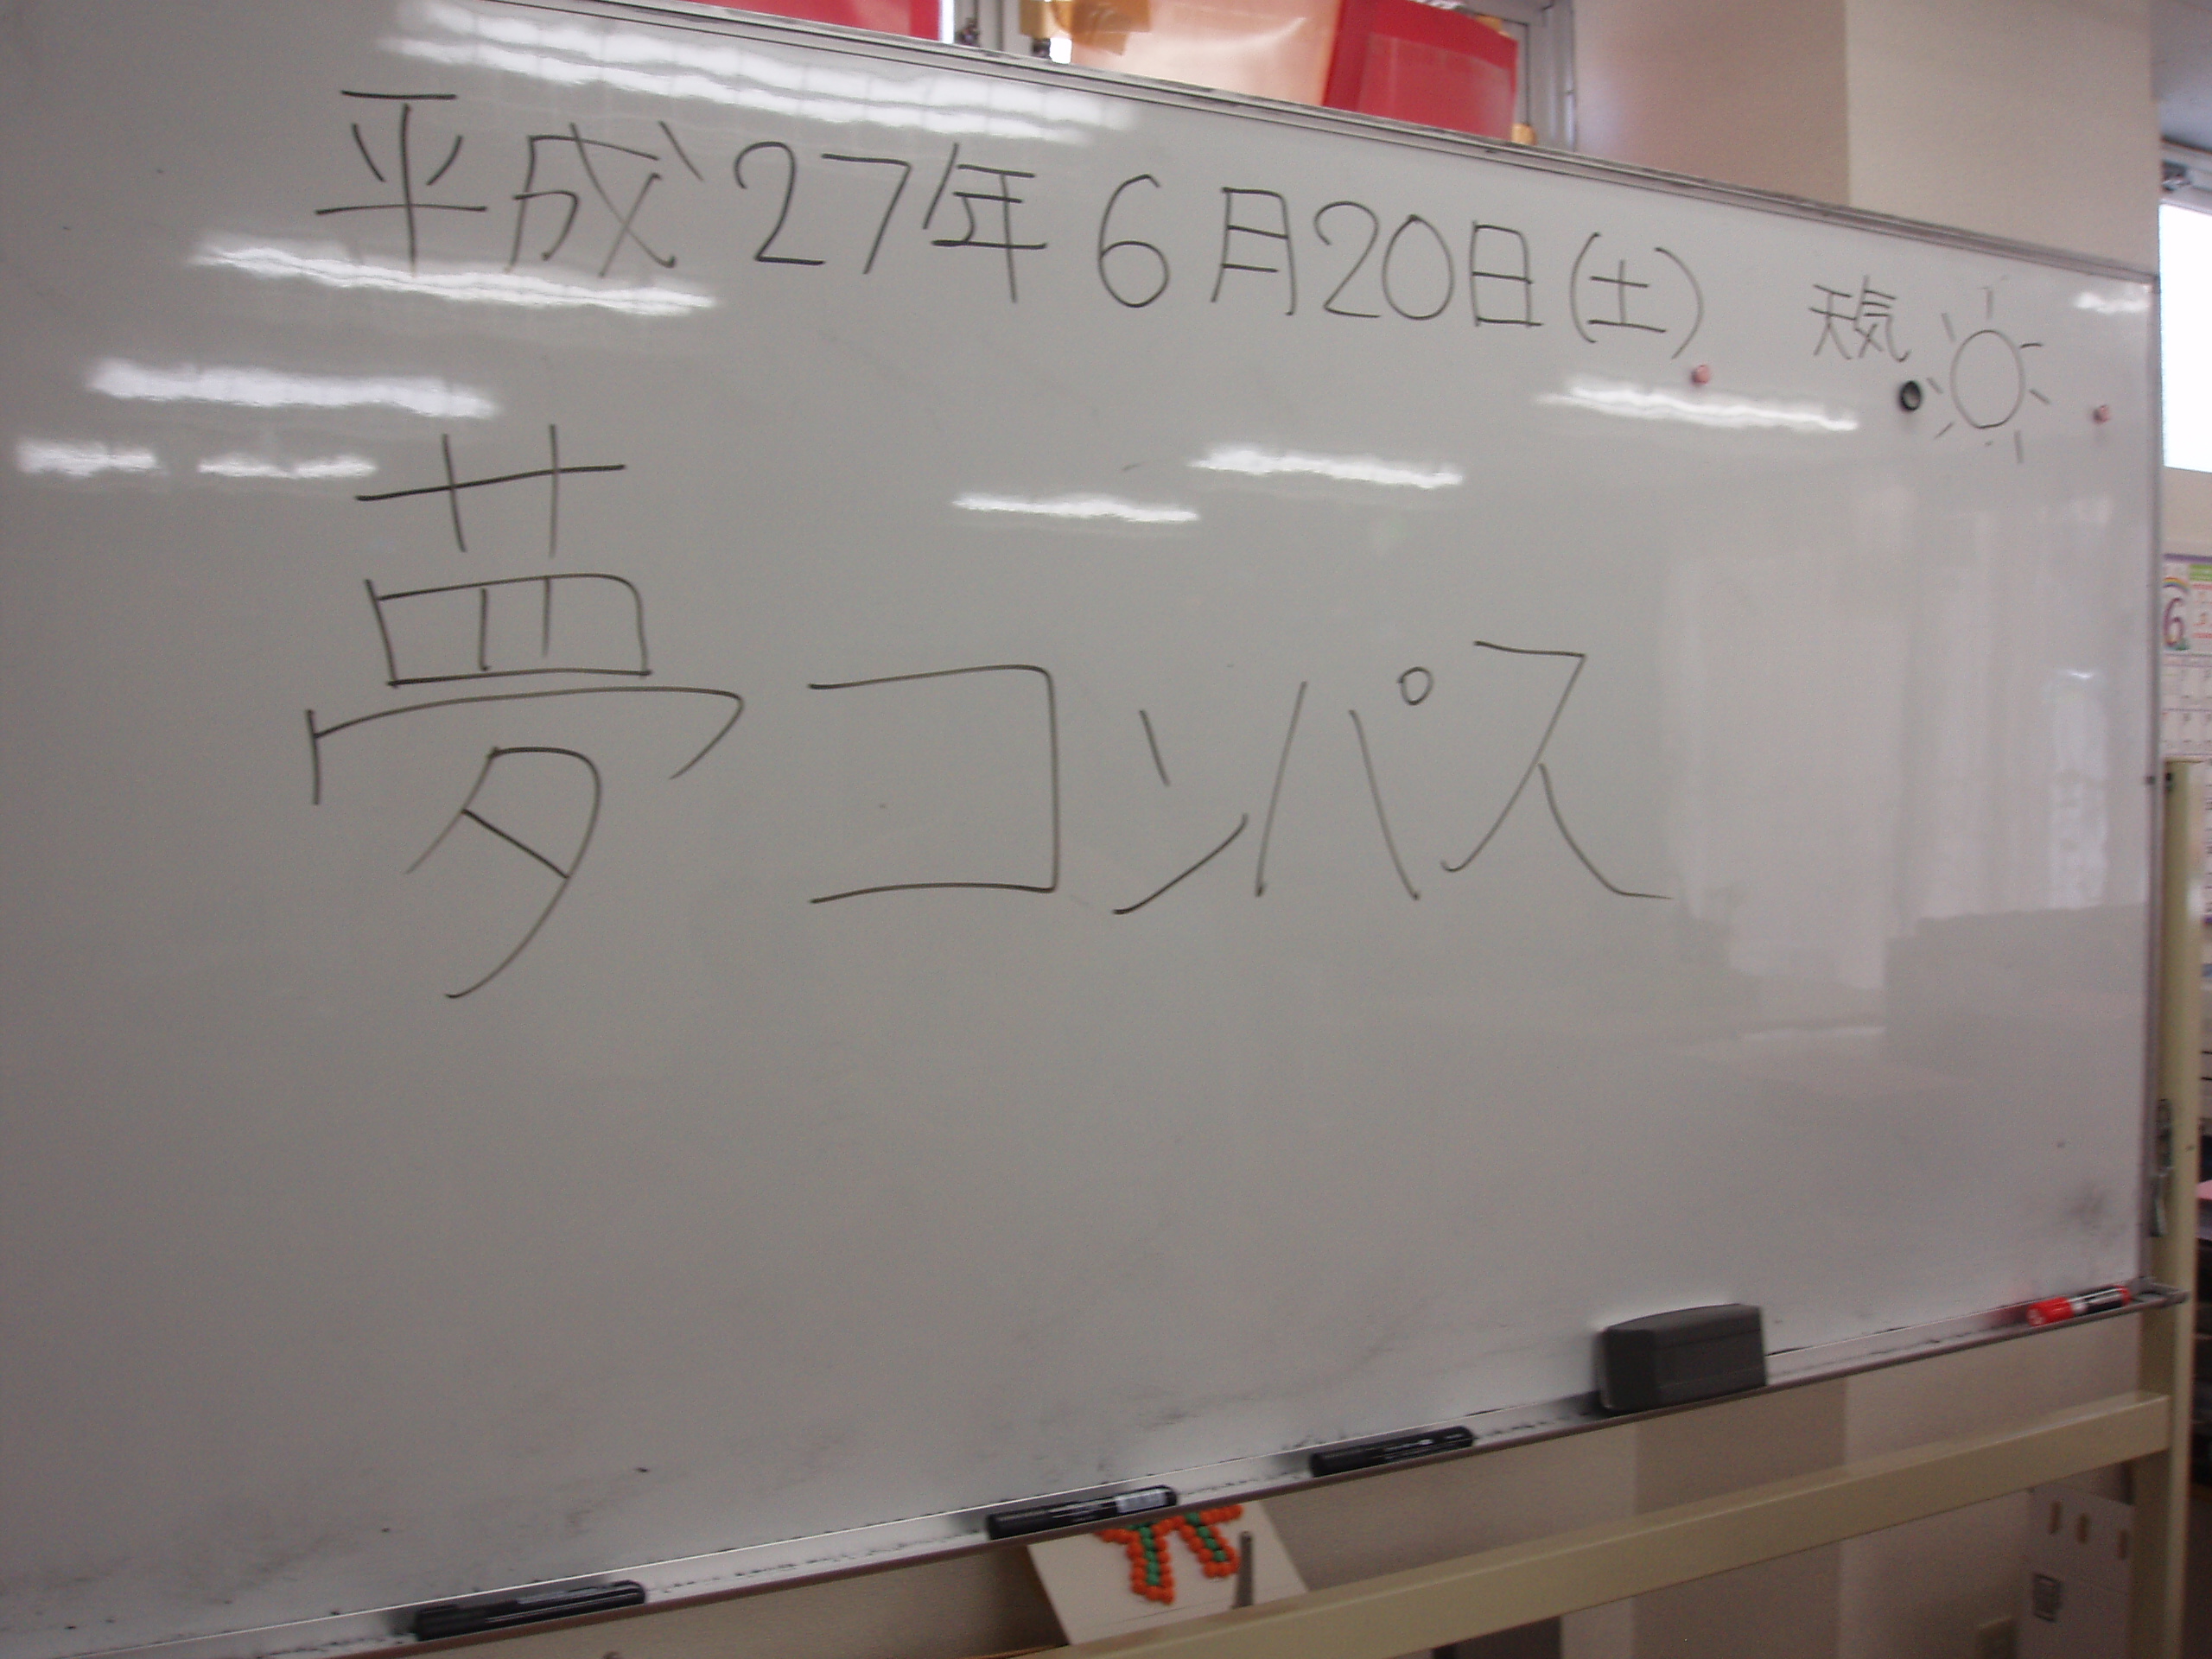 平成27年6月20日(土) 天気
夢コンパス
6